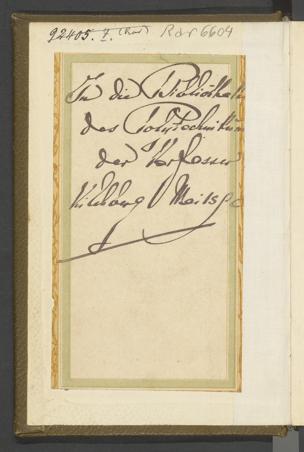 92405. I. (Rar) Rar 6604
In die Bibliothek
des Polytechnikum
der Verfasser
Mai 1890